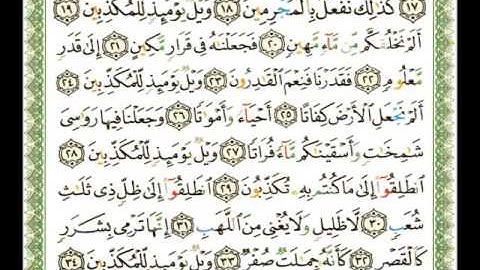 ١٧ كَذَٰلِكَ نَفْعَلُ بِٱلْمُجْرِمِينَ ١٨ وَيْلٌ يَوْمَئِذٍ لِّلْمُكَذِّبِينَ ١٩
أَلَمْ نَخْلُقكُّم مِّن مَّآءٍ مَّهِينٍ ٢٠ فَجَعَلْنَٰهُ فِى قَرَارٍ مَّكِينٍ ٢١ إِلَىٰ قَدَرٍ
مَّعْلُومٍ ٢٢ فَقَدَرْنَا فَنِعْمَ ٱلْقَٰدِرُونَ ٢٣ وَيْلٌ يَوْمَئِذٍ لِّلْمُكَذِّبِينَ ٢٤
أَلَمْ نَجْعَلِ ٱلْأَرْضَ كِفَاتًا ٢٥ أَحْيَآءً وَأَمْوَٰتًا ٢٦ وَجَعَلْنَا فِيهَا رَوَٰسِىَ
شَٰمِخَٰتٍ وَأَسْقَيْنَٰكُم مَّآءً فُرَاتًا ٢٧ وَيْلٌ يَوْمَئِذٍ لِّلْمُكَذِّبِينَ ٢٨
ٱنطَلِقُوٓا۟ إِلَىٰ مَا كُنتُم بِهِۦ تُكَذِّبُونَ ٢٩ ٱنطَلِقُوٓا۟ إِلَىٰ ظِلٍّ ذِى ثَلَٰثِ
شُعَبٍ ٣٠ لَّا ظَلِيلٍ وَلَا يُغْنِى مِنَ ٱللَّهَبِ ٣١ إِنَّهَا تَرْمِى بِشَرَرٍ
كَٱلْقَصْرِ ٣٢ كَأَنَّهُۥ جِمَٰلَتٌ صُفْرٌ ٣٣ وَيْلٌ يَوْمَئِذٍ لِّلْمُكَذِّبِينَ ٣٤